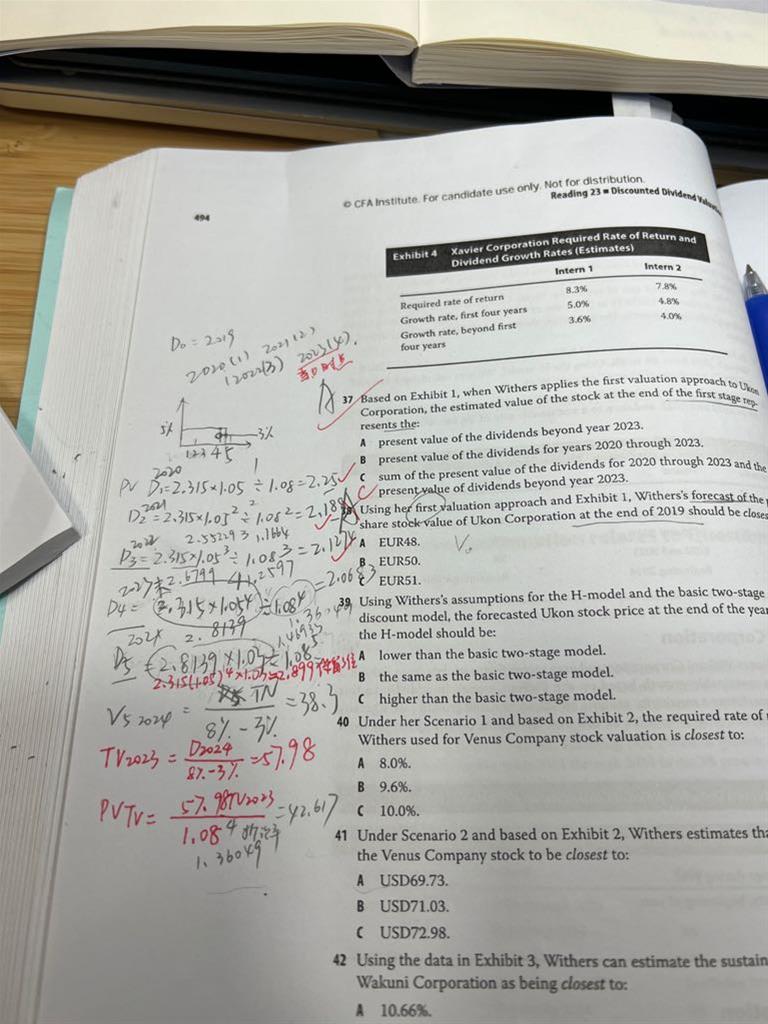 © CFA Institute. For candidate use only. Not for distribution.
494
Reading 23 ■ Discounted Dividend
Exhibit 4 Xavier Corporation Required Rate of Return and
Dividend Growth Rates (Estimates)
Intern 1 Intern 2
Required rate of return 8.3% 7.8%
Growth rate, first four years 5.0% 4.8%
Growth rate, beyond first
four years 3.6% 4.0%
D0 = 2019
2020(1) 2021(2)
2022(3) 2023(4).
A
5% 3%
1 2 3 4 5
2020
PV D1=2.315×1.05 ÷ 1.08=2.25
2021
D2=2.315×1.05² ÷ 1.08²=2.188
2.55229 1.1664
2022
D3=2.315×1.05³ ÷ 1.08³=2.127
2.6799 1.2597
D4= 2.315×1.05⁴ ÷ 1.08⁴ =2.0683
2.8139 1.36049
2024
D5 =2.8139×1.03 ÷ 1.08⁵
2.315(1.05)⁴×1.03=2.899
V5 2024 = =38.3
8%-3%
TV2023 = D2024 =57.98
8%-3%
PVTV= 57.98TV2023 =42.617
1.08⁴
1.36049
37 Based on Exhibit 1, when Withers applies the first valuation approach to Ukon
Corporation, the estimated value of the stock at the end of the first stage rep-
resents the:
A present value of the dividends beyond year 2023.
B present value of the dividends for years 2020 through 2023.
C sum of the present value of the dividends for 2020 through 2023 and the
present value of dividends beyond year 2023.
Using her first valuation approach and Exhibit 1, Withers's forecast of the
share stock value of Ukon Corporation at the end of 2019 should be
A EUR48.
B EUR50.
C EUR51.
39 Using Withers's assumptions for the H-model and the basic two-stage
discount model, the forecasted Ukon stock price at the end of the year
the H-model should be:
A lower than the basic two-stage model.
B the same as the basic two-stage model.
C higher than the basic two-stage model.
40 Under her Scenario 1 and based on Exhibit 2, the required rate of
Withers used for Venus Company stock valuation is closest to:
A 8.0%.
B 9.6%.
C 10.0%.
41 Under Scenario 2 and based on Exhibit 2, Withers estimates
the Venus Company stock to be closest to:
A USD69.73.
B USD71.03.
C USD72.98.
42 Using the data in Exhibit 3, Withers can estimate the
Wakuni Corporation as being closest to:
A 10.66%.